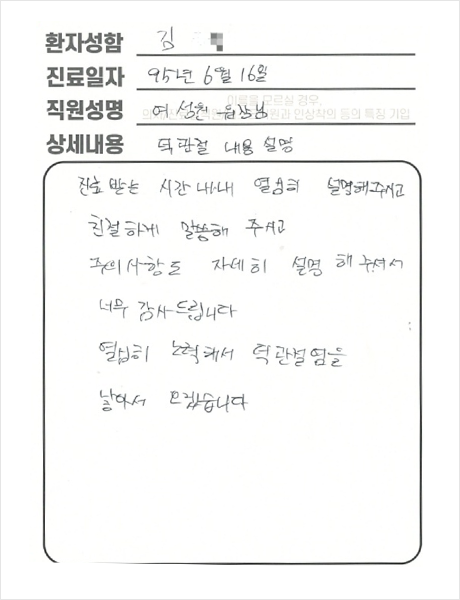 환자성함 김
진료일자 95년 6월 16일
이름을 모르실 경우,
직원성명 여성원 원장님
인상착의 등의 특징 기입
상세내용 턱관절 내용 설명
진료 받는 시간 내내 열심히 설명해주시고
친절하게 말씀해 주시고
주의사항도 자세히 설명해주셔서
너무 감사드립니다
열심히 노력해서 턱관절염을
낳아서 오겠습니다